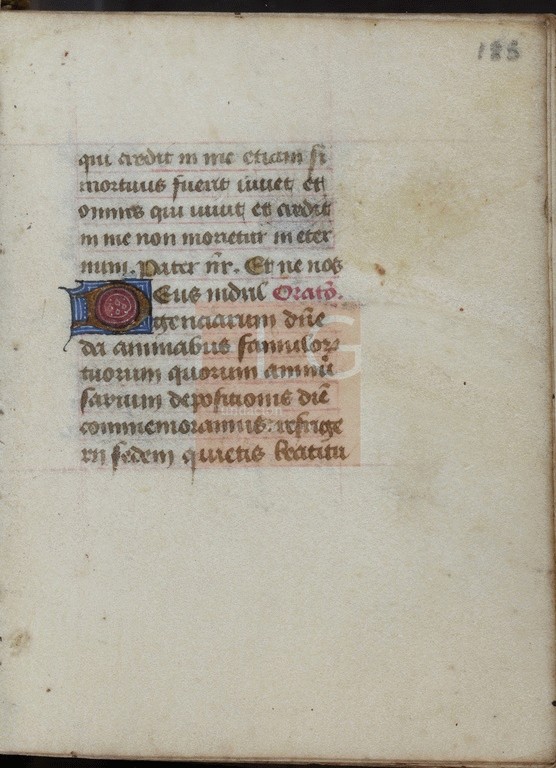 185
qui credit in me etiam si
mortuus fuerit vivet et
omnes qui vivit et credit
in me non morietur in eter
num. Pater nr̄. Et ne nos
Deus indul Oratō.
genciarum dn̄e
da animabus famulor
tuorum quorum anniū
sarium depositionis diē
commemoramus: refrige
rii sedem quietis beatitu
FLG
fundación